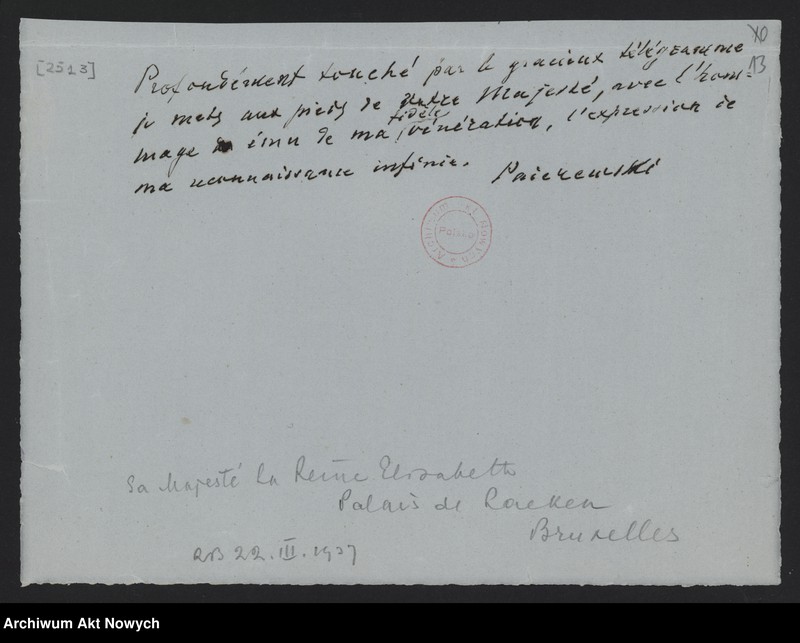 [2513]
XO
13
Profondément touché par le gracieux télégramme
je mets aux pieds de Votre Majesté, avec l'hom-
mage ému de ma fidèle vénération, l'expression de
ma reconnaissance infinie. Paderewski
Archiwum Akt Nowych
Polska
Sa Majesté La Reine Elisabeth
Palais de Laeken
Bruxelles
22.III.1937
Archiwum Akt Nowych